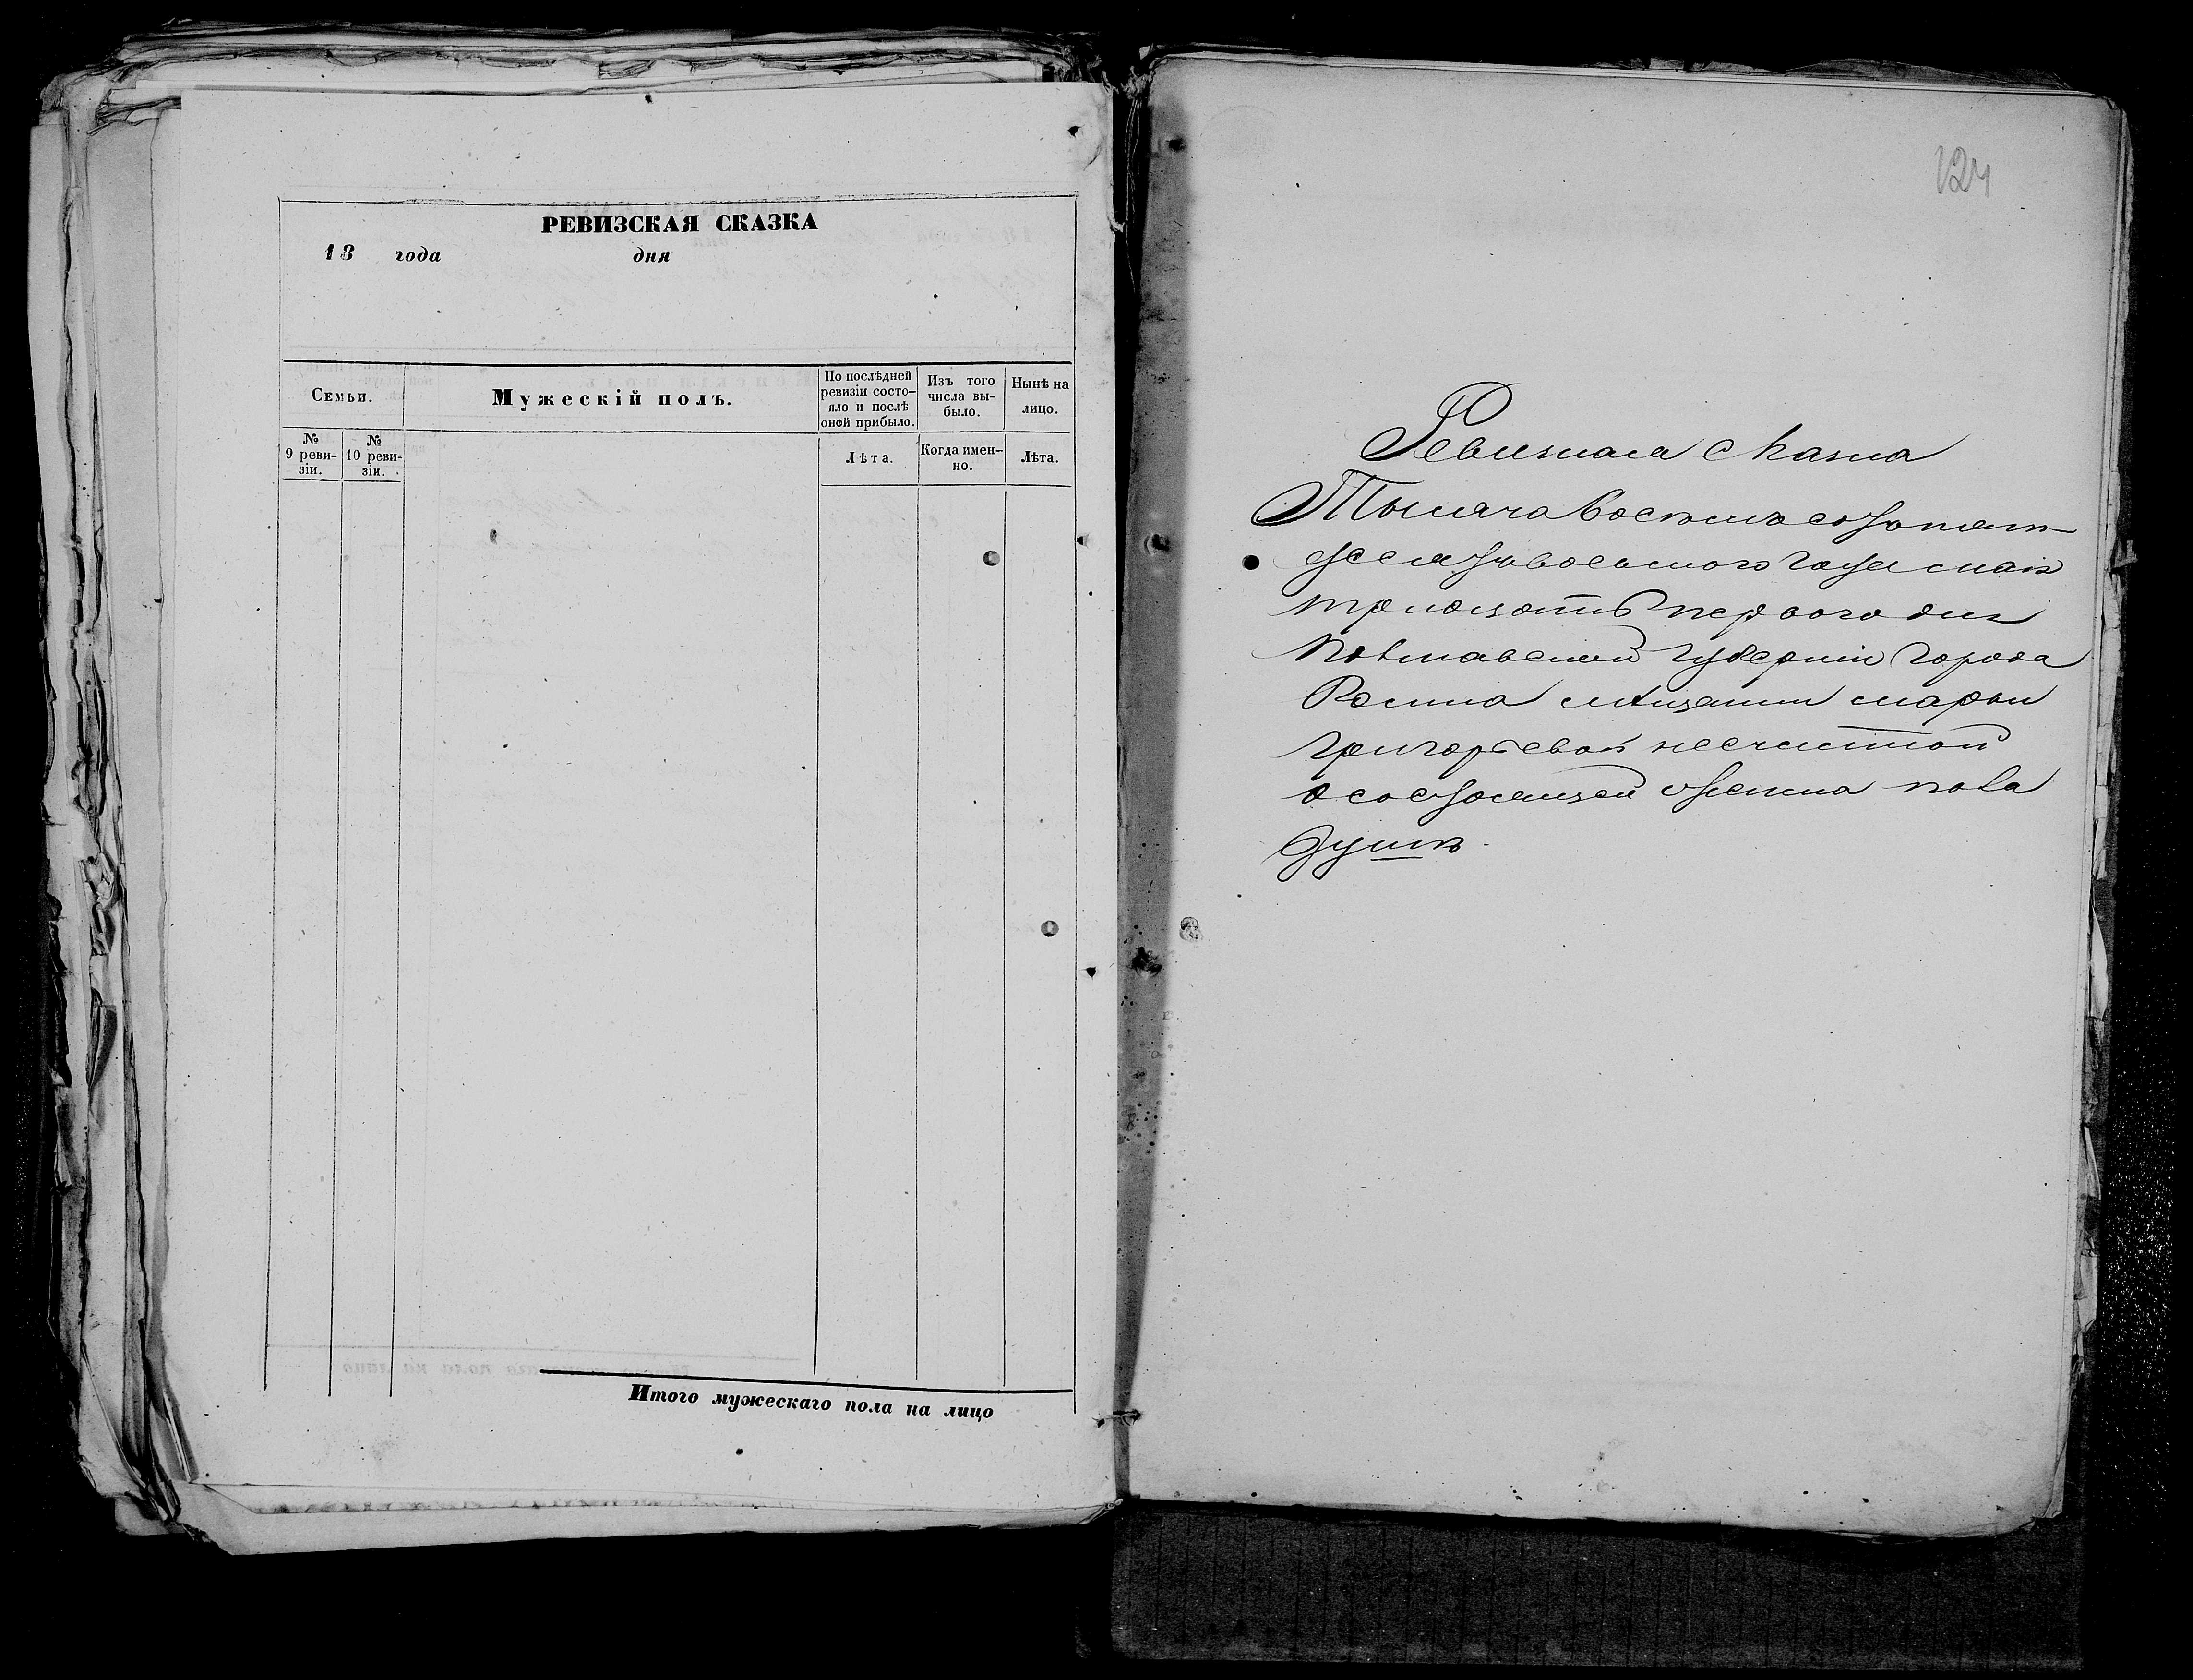 РЕВИЗСКАЯ СКАЗКА
18 года дня
Семьи.
Мужескій полъ.
По послѣдней
ревизіи состо-
яло и послѣ
оной прибыло.
Изъ того
числа вы-
было.
Нынѣ на
лицо.
№
9 реви-
зіи.
№
10 реви-
зіи.
Лѣта.
Когда имен-
но.
Лѣта.
Итого мужескаго пола на лицо
124
Ревизкая сказка
Тысяча восемь сотъ пять
десятъ восьмого года мая
тридцать первого дня
Полтавской губерніи города
Ромна мещанки марьи
григорьевой несчетной
о состоящей женска пола
душъ